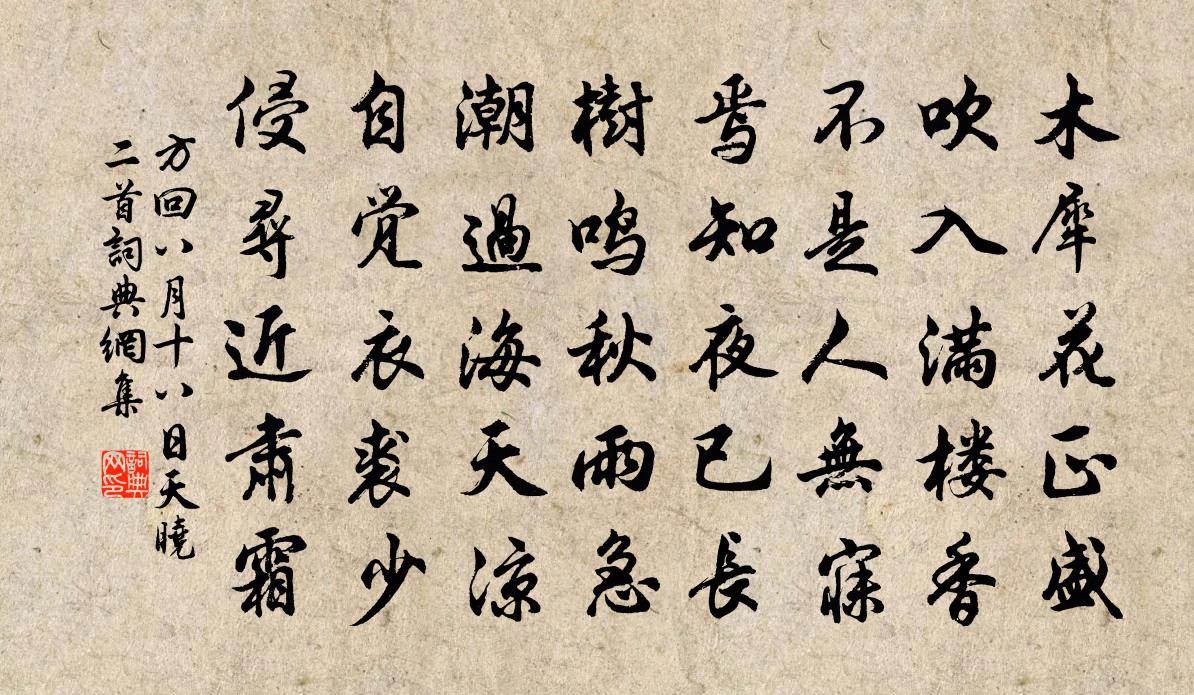 木犀花正盛
吹入满楼香
不是人無寐
焉知夜已長
樹鸣秋雨急
潮過海天凉
自觉衣裘少
侵尋近肅霜
方回八月十八日天曉
二首詞典網集
詞典网印